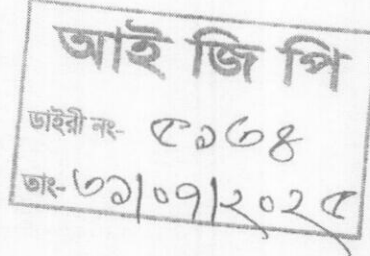 আই জি পি
ডাইরী নং- ৫১৩৪
তাং- ৩১/০৭/২০২৫